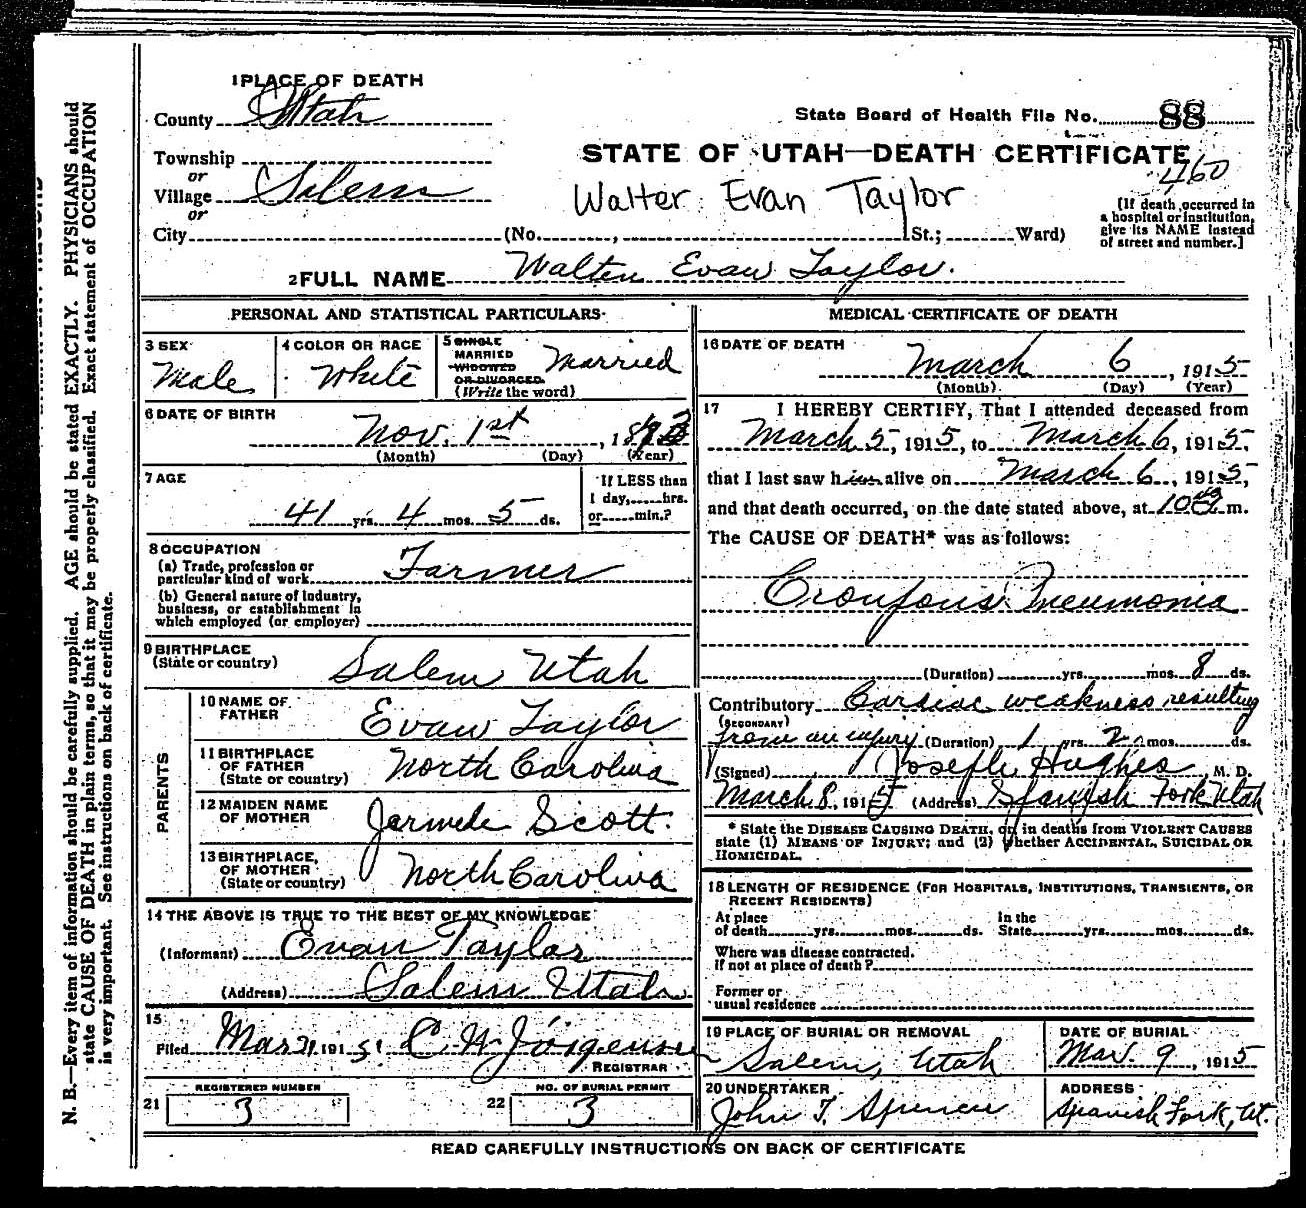 1 PLACE OF DEATH
County Utah
State Board of Health File No. 88
Township
or
Village Salem
or
City (No. , St.; Ward)
STATE OF UTAH—DEATH CERTIFICATE
460
Walter Evan Taylor
[If death occurred in
a hospital or institution,
give its NAME instead
of street and number.]
2 FULL NAME Walter Evan Taylor.
PERSONAL AND STATISTICAL PARTICULARS
3 SEX
Male
4 COLOR OR RACE
White
5 SINGLE
MARRIED
WIDOWED
OR DIVORCED.
(Write the word)
Married
6 DATE OF BIRTH
Nov. 1st , 18
(Month) (Day) (Year)
7 AGE
41 yrs. 4 mos. 5 ds.
If LESS than
1 day, hrs.
or min.?
8 OCCUPATION
(a) Trade, profession or
particular kind of work Farmer
(b) General nature of industry,
business, or establishment in
which employed (or employer)
9 BIRTHPLACE
(State or country)
Salem Utah
PARENTS
10 NAME OF
FATHER
Evan Taylor
11 BIRTHPLACE
OF FATHER
(State or country)
North Carolina
12 MAIDEN NAME
OF MOTHER
Scott.
13 BIRTHPLACE,
OF MOTHER
(State or country)
North Carolina
14 THE ABOVE IS TRUE TO THE BEST OF MY KNOWLEDGE
(Informant) Evan Taylor
(Address) Salem Utah
15
Filed Mar 31, 1915. C. N. Jörgensen
REGISTRAR
REGISTERED NUMBER
21 3
NO. OF BURIAL PERMIT
22 3
MEDICAL CERTIFICATE OF DEATH
16 DATE OF DEATH
March 6 , 1915
(Month) (Day) (Year)
17 I HEREBY CERTIFY, That I attended deceased from
March 5, 1915, to March 6, 1915,
that I last saw him alive on March 6, 1915,
and that death occurred, on the date stated above, at 10 m.
The CAUSE OF DEATH* was as follows:
Croupous Pneumonia
(Duration) yrs. mos. 8 ds.
Contributory Cardiac weakness resulting
(SECONDARY)
from an injury (Duration) 1 yrs. 2 mos. ds.
(Signed) Joseph Hughes, M. D.
March 8, 1915 (Address) Spanish Fork Utah
* State the DISEASE CAUSING DEATH, or, in deaths from VIOLENT CAUSES
state (1) MEANS OF INJURY; and (2) whether ACCIDENTAL, SUICIDAL OR
HOMICIDAL.
18 LENGTH OF RESIDENCE (FOR HOSPITALS, INSTITUTIONS, TRANSIENTS, OR
RECENT RESIDENTS)
At place
of death yrs. mos. ds.
In the
State yrs. mos. ds.
Where was disease contracted.
if not at place of death?
Former or
usual residence
19 PLACE OF BURIAL OR REMOVAL
Salem, Utah
DATE OF BURIAL
Mar. 9, 1915
20 UNDERTAKER
John T. Spencer
ADDRESS
Spanish Fork, Ut.
READ CAREFULLY INSTRUCTIONS ON BACK OF CERTIFICATE
N. B.—Every item of information should be carefully supplied. AGE should be stated EXACTLY. PHYSICIANS should
state CAUSE OF DEATH in plain terms, so that it may be properly classified. Exact statement of OCCUPATION
is very important. See instructions on back of certificate.